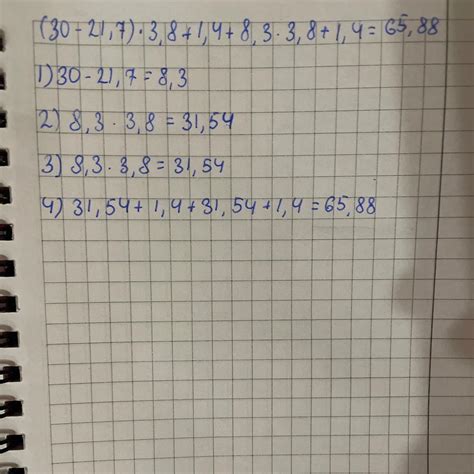 (30-21,7)·3,8+1,4+8,3·3,8+1,4=65,88
1) 30-21,7=8,3
2) 8,3·3,8=31,54
3) 8,3·3,8=31,54
4) 31,54+1,4+31,54+1,4=65,88